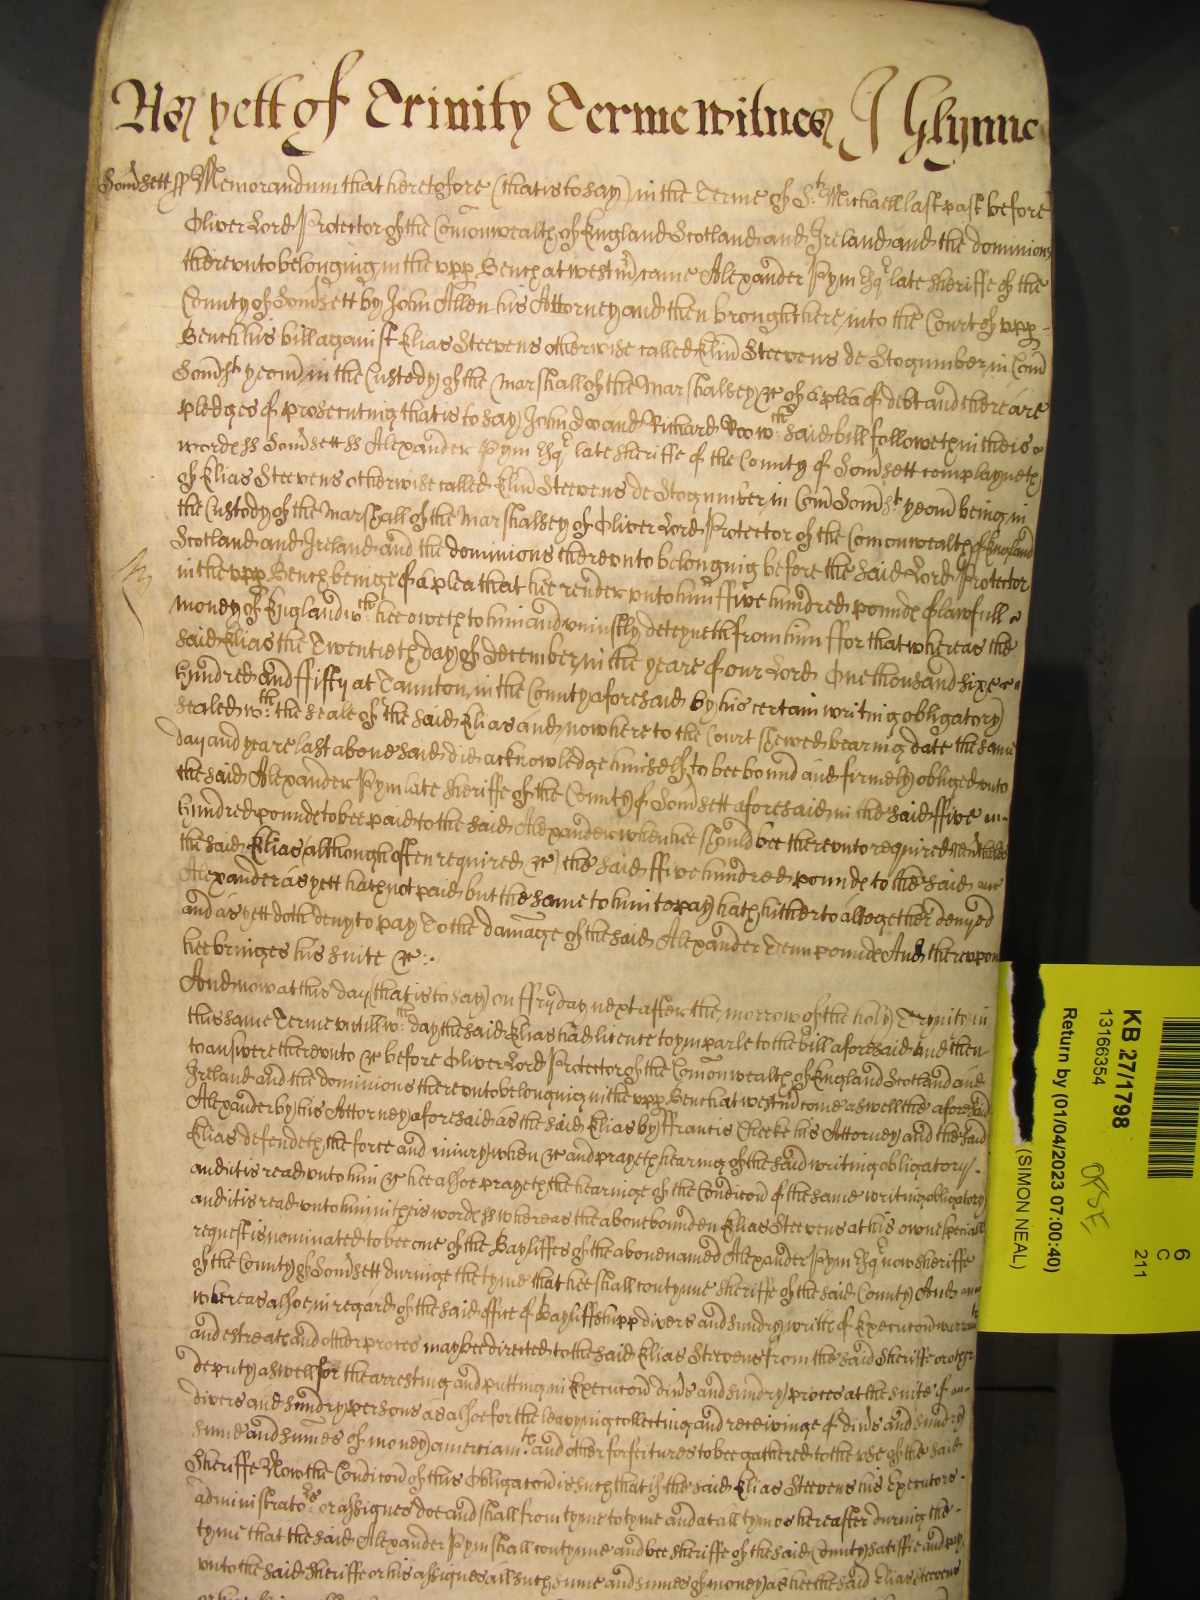 As yett of Trinity Terme Witnes J Glynne
Somsett ss Memorandum that heretofore (that is to say) in the Terme of St. Michaell last past before
Oliver Lord Protector of the Comonwealth of England Scotland and Ireland and the dominions
therevnto belonging in the vpp Bench at Westmr came Alexander Pym Esqr late Sheriffe of the
County of Somsett by John Allen his Attorney and then brought here into the Court of vpp
Bench his bill against Elias Steevens otherwise called Elim Steevens de Stogumber in Com
Somst yeom in the Custody of the Marshall of the Marshalsey &c of a plea of debt and there are
pledges of prosecuting that is to say John Doo and Richard Roo wch said bill followeth in theis
wordes ss Somsett ss Alexander Pym Esqr late Sheriffe of the County of Somsett complayneth
of Elias Steevens otherwise called Elim Steevens de Stogumber in Com Somst yeom being in
the Custody of the Marshall of the Marshalsey of Oliver Lord Protector of the Comonwealth of England
Scotland and Ireland and the dominions therevnto belonging before the said Lord Protector
in the vpp Bench beinge of a plea that hee render vnto him ffive hundred pounde of lawfull
money of England wch hee oweth to him and vniustly deteyneth from him ffor that whereas the
said Elias the Twentieth day of December in the yeare of our Lord One thousand sixe
hundred and ffifty at Taunton in the County aforesaid by his certain writing obligatory
sealed wth the seale of the said Elias and now here to the Court shewed bearing date the same
day and yeare last abovesaid did acknowledge himself to bee bound and firmely obliged vnto
the said Alexander Pym late Sheriffe of the County of Somsett aforesaid in the said ffive
hundred pounde to bee paid to the said Alexander when hee should bee therevnto required
the said Elias (although often required &c) the said ffive hundred pounde to the said
Alexander as yett hath not paid but the same to him to pay hath hitherto altogether denyed
and as yett doth deny to pay To the damage of the said Alexander Tenn pounde And therevpon
hee bringes his suite &c
And now at this day (that is to say) on ffryday next after the morrow of the holy Trynity in
this same Terme vntill wch day the said Elias had licence to ymparle to the bill aforesaid And then
to answere therevnto &c before Oliver Lord Protector of the Comonwealth of England Scotland and
Ireland and the dominions therevnto belonging in the vpp Bench at Westmr come aswell the aforesaid
Alexander by his Attorney aforesaid as the said Elias by ffrancis Cheeke his Attorney and the said
Elias defendeth the force and iniury when &c and prayeth hearing of the said writing obligatory
and it is read vnto him &c hee alsoe prayeth the hearinge of the Condicon of the same writing obligatory
and it is read vnto him in theis wordes ss Whereas the abovebounden Elias Steevens at his owne speciall
request is nominated to bee one of the Bayliffes of the abovenamed Alexander Pym Esqr now Sheriffe
of the County of Somsett duringe the tyme that hee shall contynue Sheriffe of the said County And
whereas alsoe in regard of the said office of Bayliffshipp divers and sundry writts of Execucon
and estreats and other proces may bee directed to the said Elias Steevens from the said Sheriffe or other
deputy aswell for the arresting and putting in Execucon divs and sundry proces at the suite of
divers and sundry persons as alsoe for the leavying collecting and receivinge of divs and sundry
sume and sumes of money amerciamts and other forfeitures to bee gathered to the vse of the said
Sheriffe Now the Condicon of this Obligacon is such that if the said Elias Steevens his Executors
administrators or assignes doe and shall from tyme to tyme and at all tymes hereafter during the
tyme that the said Alexander Pym shall contynue and bee Sheriffe of the said County satisfie and pay
vnto the said Sheriffe or his assignes all such sume and sumes of money as hee the said Elias Steevens
KB 27/1798
13166354
Return by (01/04/2023 07:00:40)
(SIMON NEAL)
6
C
211